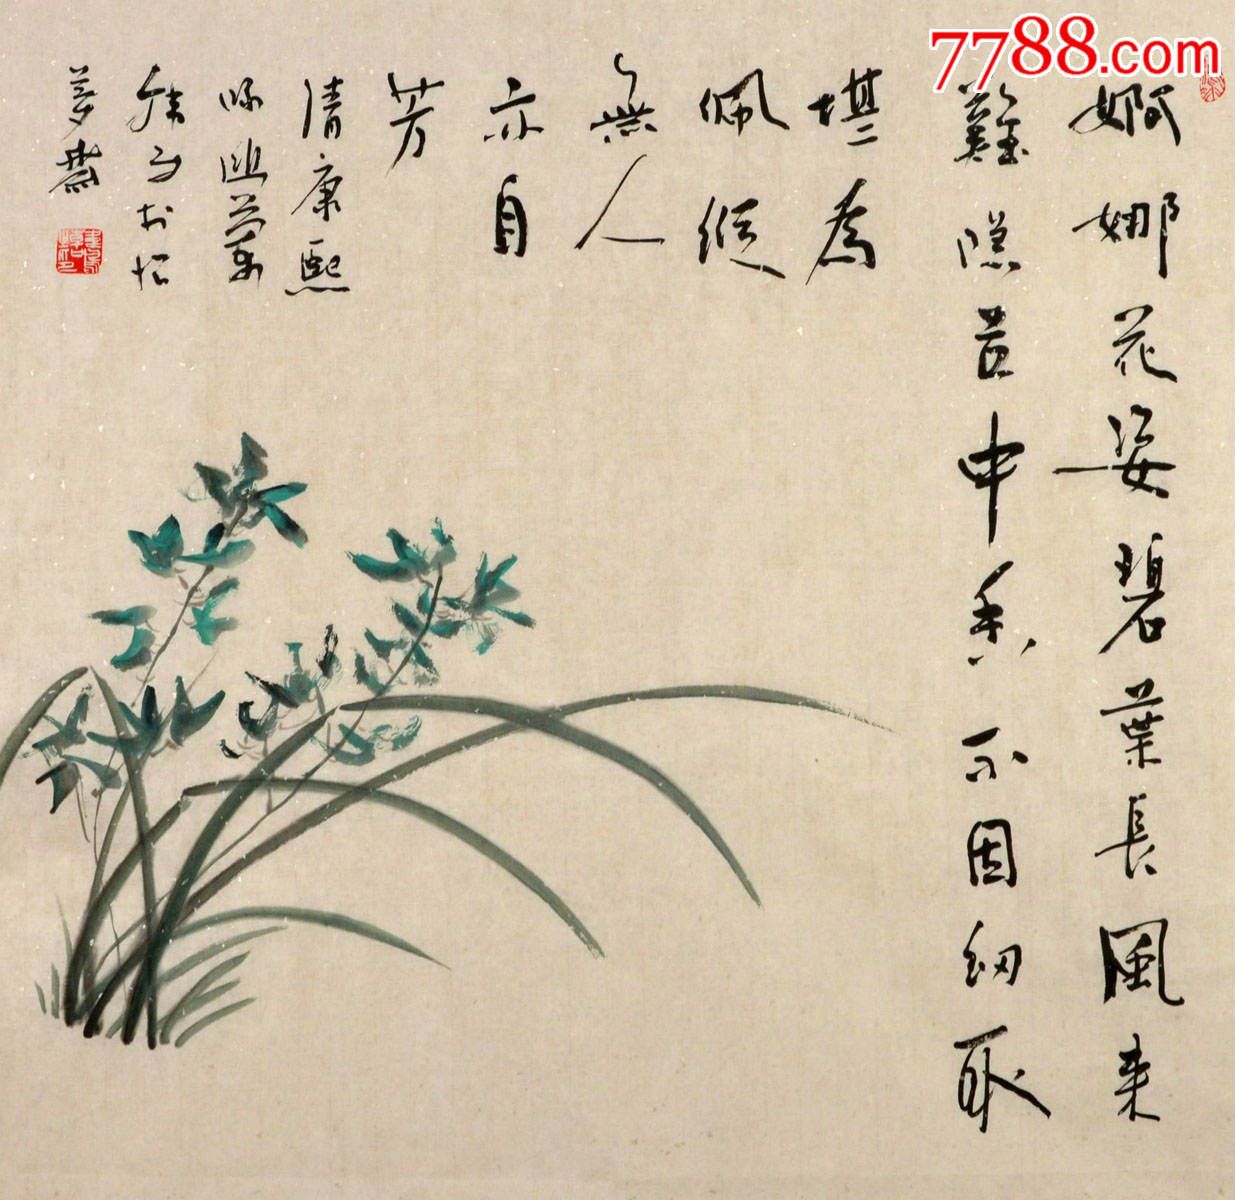 7788.com
婀娜花姿碧葉長風来
難隐谷中香不因紉取
堪為
佩縱
無人
亦自
芳
清康熙
咏幽蘭
於怡
夢齋